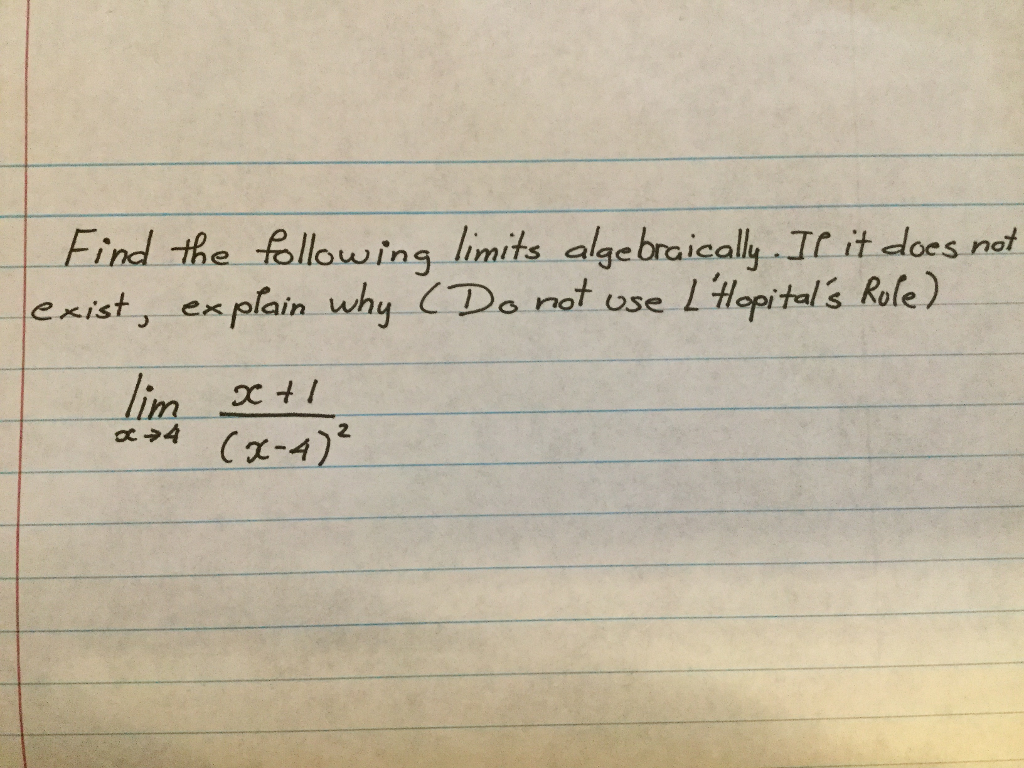 Find the following limits algebraically. If it does not
exist, explain why (Do not use L'Hopital's Rule)
lim x + 1
x→4 (x-4)²